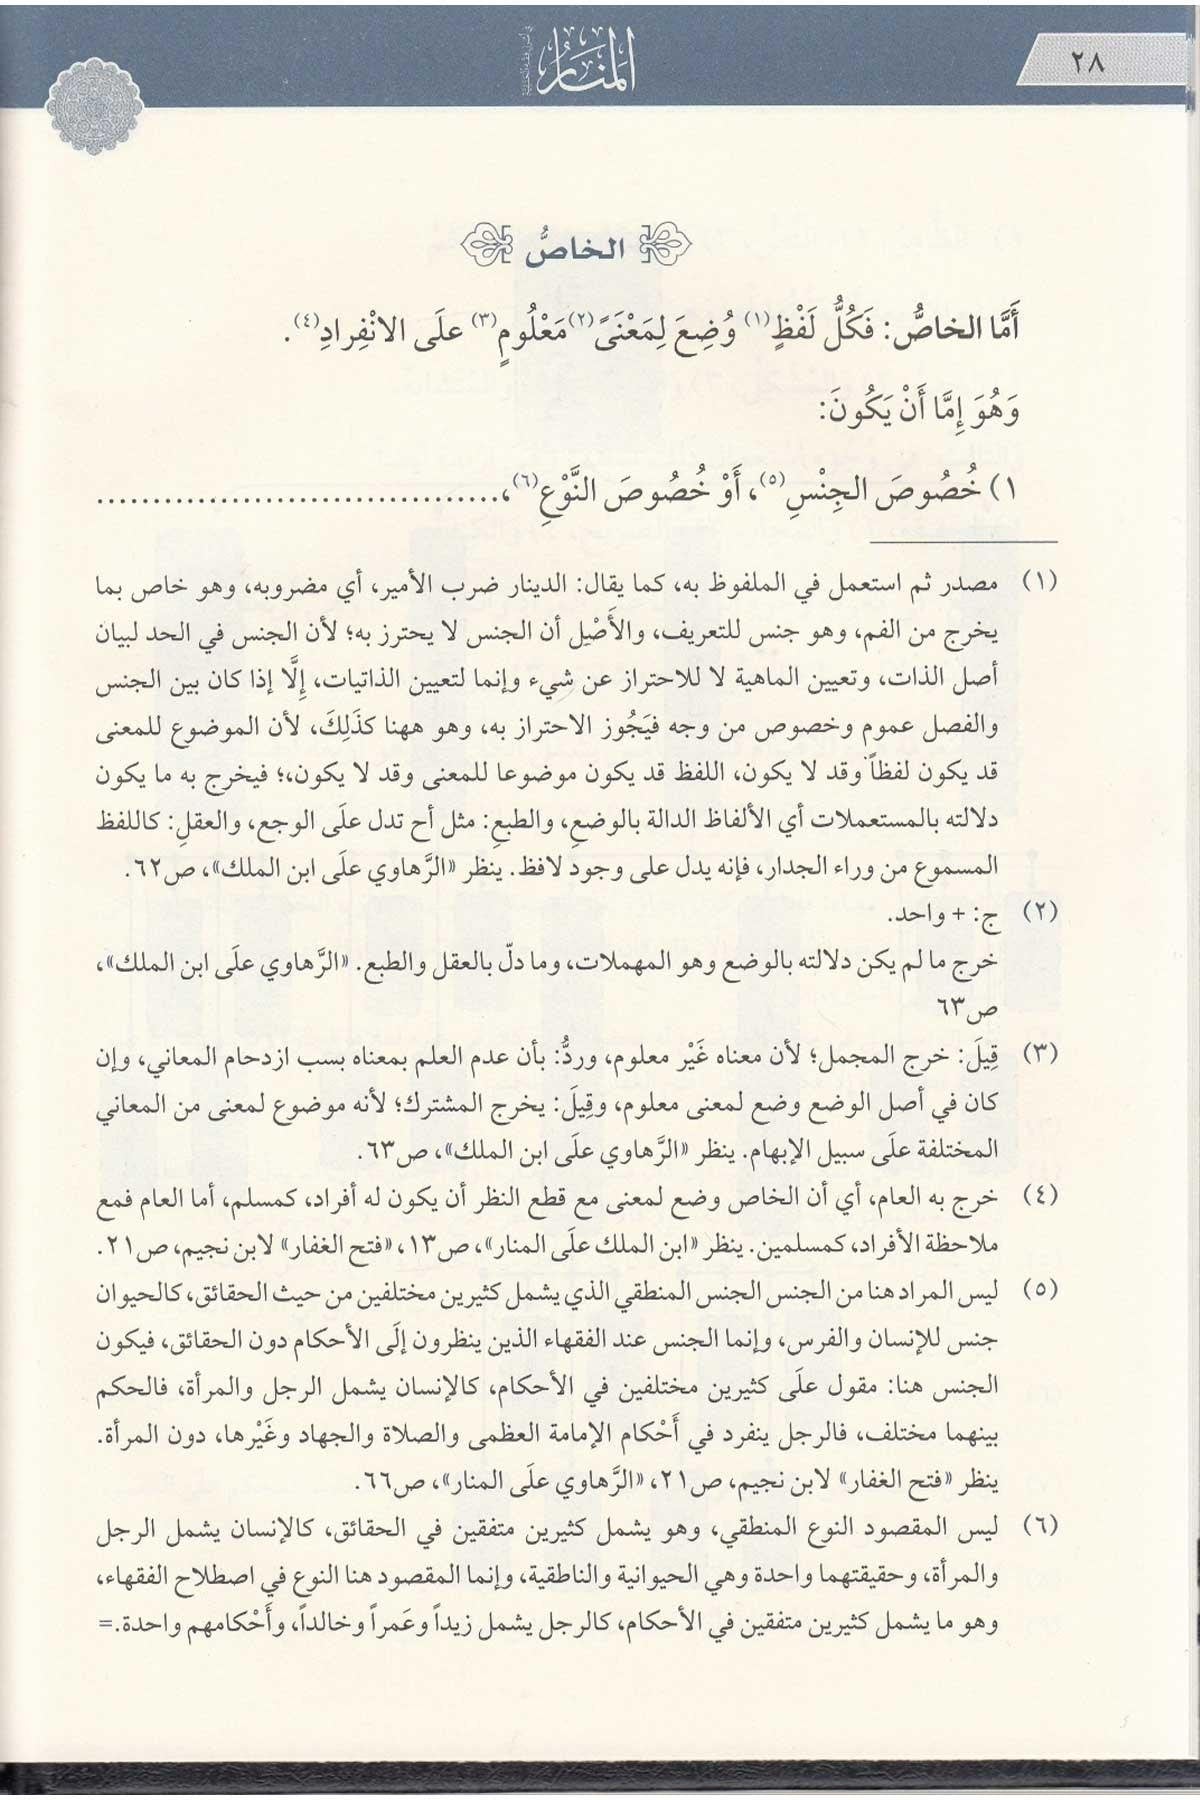 المنار
٢٨
الخاصُّ
أَمَّا الخاصُّ: فَكُلُّ لَفْظٍ(١) وُضِعَ لِمَعْنَىً(٢) مَعْلُومٍ(٣) علَى الانْفِرادِ(٤).
وَهُوَ إِمَّا أَنْ يَكُونَ:
١) خُصُوصَ الجِنْسِ(٥)، أَوْ خُصُوصَ النَّوْعِ(٦)، ....................................
(١) مصدر ثم استعمل في الملفوظ به، كما يقال: الدينار ضرب الأمير، أي مضروبه، وهو خاص بما
يخرج من الفم، وهو جنس للتعريف، والأَصْلِ أن الجنس لا يحترز به؛ لأن الجنس في الحد لبيان
أصل الذات، وتعيين الماهية لا للاحتراز عن شيء وإنما لتعيين الذاتيات، إِلَّا إذا كان بين الجنس
والفصل عموم وخصوص من وجه فيَجُوز الاحتراز به، وهو ههنا كذَلِكَ، لأن الموضوع للمعنى
قد يكون لفظاً وقد لا يكون، اللفظ قد يكون موضوعا للمعنى وقد لا يكون،؛ فيخرج به ما يكون
دلالته بالمستعملات أي الألفاظ الدالة بالوضعِ، والطبعِ: مثل أح تدل علَى الوجع، والعقلِ: كاللفظ
المسموع من وراء الجدار، فإنه يدل على وجود لافظ. ينظر «الرَّهاوي علَى ابن الملك»، ص٦٢.
(٢) ج: + واحد.
خرج ما لم يكن دلالته بالوضع وهو المهملات، وما دلّ بالعقل والطبع. «الرَّهاوي علَى ابن الملك»،
ص٦٣
(٣) قِيلَ: خرج المجمل؛ لأن معناه غَيْر معلوم، وردُّ: بأن عدم العلم بمعناه بسب ازدحام المعاني، وإن
كان في أصل الوضع وضع لمعنى معلوم، وقِيلَ: يخرج المشترك؛ لأنه موضوع لمعنى من المعاني
المختلفة علَى سبيل الإبهام. ينظر «الرَّهاوي علَى ابن الملك»، ص٦٣.
(٤) خرج به العام، أي أن الخاص وضع لمعنى مع قطع النظر أن يكون له أفراد، كمسلم، أما العام فمع
ملاحظة الأفراد، كمسلمين. ينظر «ابن الملك علَى المنار»، ص١٣، «فتح الغفار» لابن نجيم، ص٢١.
(٥) ليس المراد هنا من الجنس الجنس المنطقي الذي يشمل كثيرين مختلفين من حيث الحقائق، كالحيوان
جنس للإنسان والفرس، وإنما الجنس عند الفقهاء الذين ينظرون إلَى الأحكام دون الحقائق، فيكون
الجنس هنا: مقول علَى كثيرين مختلفين في الأحكام، كالإنسان يشمل الرجل والمرأة، فالحكم
بينهما مختلف، فالرجل ينفرد في أَحْكام الإمامة العظمى والصلاة والجهاد وغَيْرها، دون المرأة.
ينظر «فتح الغفار» لابن نجيم، ص٢١، «الرَّهاوي علَى المنار»، ص٦٦.
(٦) ليس المقصود النوع المنطقي، وهو يشمل كثيرين متفقين في الحقائق، كالإنسان يشمل الرجل
والمرأة، وحقيقتهما واحدة وهي الحيوانية والناطقية، وإنما المقصود هنا النوع في اصطلاح الفقهاء،
وهو ما يشمل كثيرين متفقين في الأحكام، كالرجل يشمل زيداً وعَمراً وخالداً، وأَحْكامهم واحدة.=